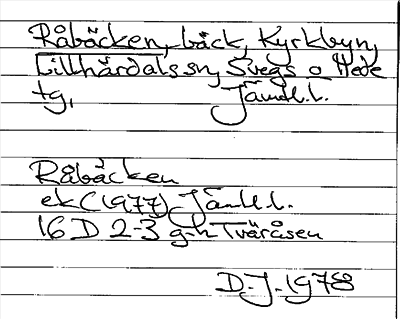 Råbäcken, bäck, Kyrkbyn,
Lillhärdals sn, Svegs o Hede
tg, Jämtl.l.
Råbäcken
ek (1977) Jämtl.l.
16 D 2-3 g-h Tväråsen
D.J. 1978